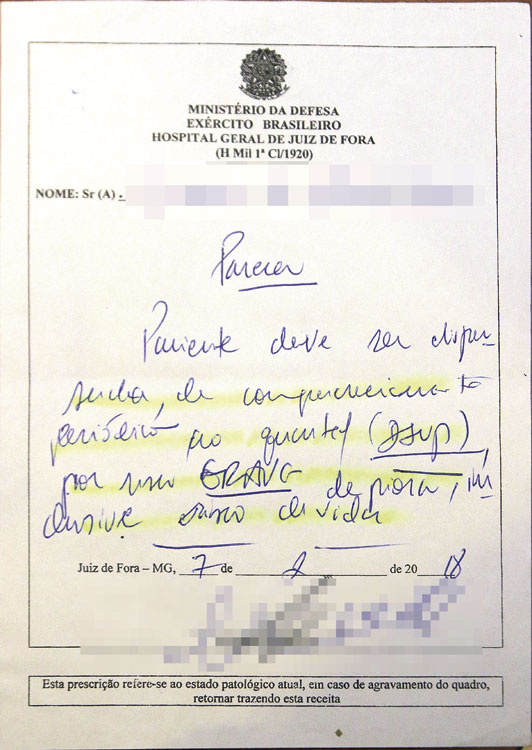 MINISTÉRIO DA DEFESA
EXÉRCITO BRASILEIRO
HOSPITAL GERAL DE JUIZ DE FORA
(H Mil 1ª Cl/1920)
NOME: Sr (A) -
Parecer
Paciente deve ser dispen-
sada, de comparecimento
periódico ao quartel (DSup),
por risco GRAVE de piora, in-
clusive risco de vida
Juiz de Fora – MG, 7 de de 20 18
Esta prescrição refere-se ao estado patológico atual, em caso de agravamento do quadro,
retornar trazendo esta receita